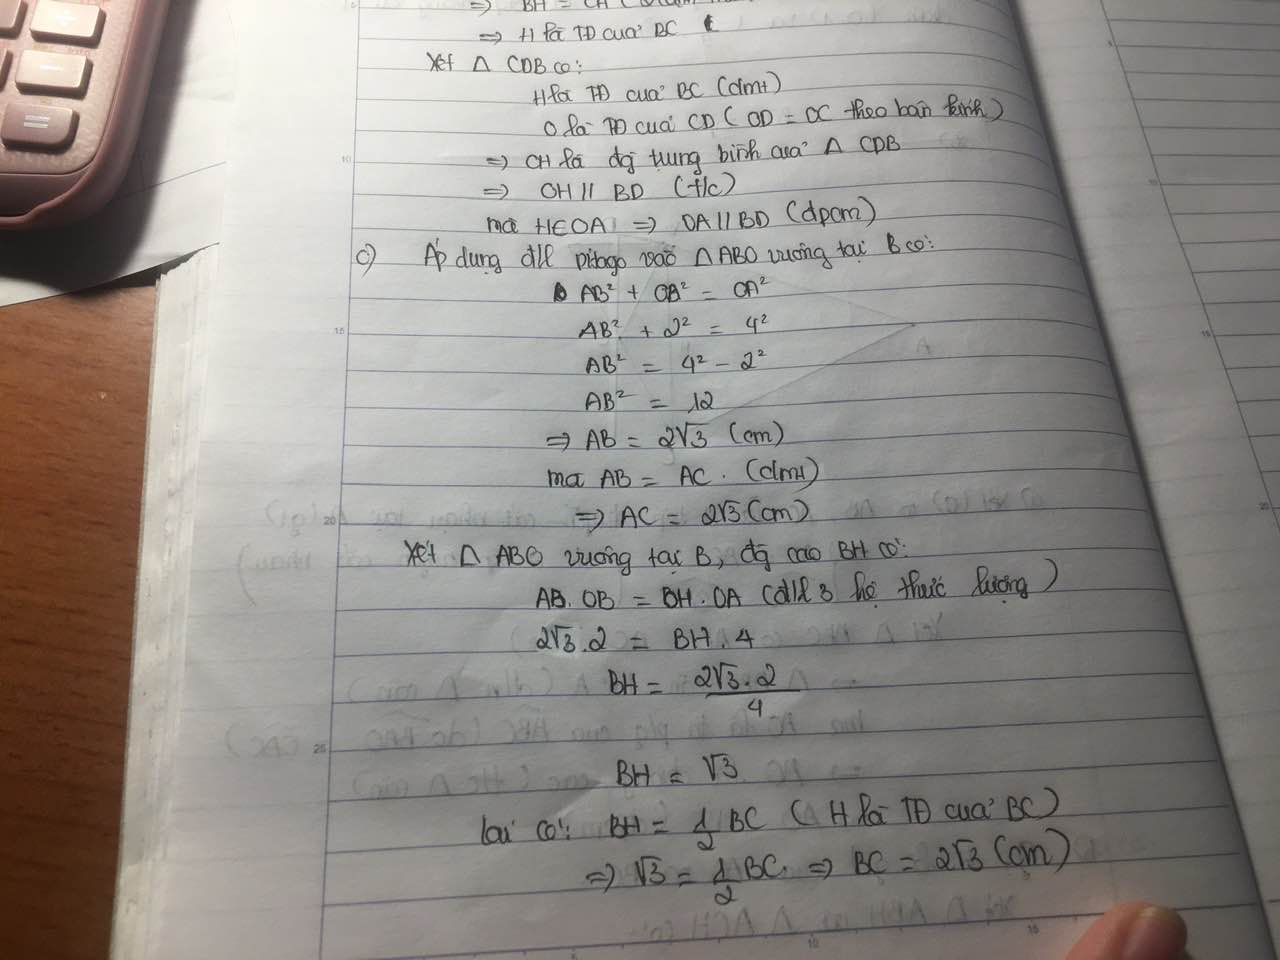 => BH = CH
=> H là TĐ của BC
Xét Δ CDB có:
H là TĐ của BC (cmt)
O là TĐ của CD ( OD = OC theo bán kính )
=> OH là đg trung bình của Δ CDB
=> OH // BD (t/c)
mà H∈OA => OA // BD (đpcm)
c) Áp dụng đlí pitago vào Δ ABO vuông tại B có:
AB² + OB² = OA²
AB² + 2² = 4²
AB² = 4² - 2²
AB² = 12
=> AB = 2√3 (cm)
mà AB = AC . (cmt)
=> AC = 2√3 (cm)
Xét Δ ABO vuông tại B, đg cao BH có:
AB. OB = BH. OA (đlí 3 hệ thức lượng )
2√3 . 2 = BH. 4
BH = 2√3 . 2 / 4
BH = √3
lại có: BH = 1/2 BC ( H là TĐ của BC )
=> √3 = 1/2 BC. => BC = 2√3 (cm)